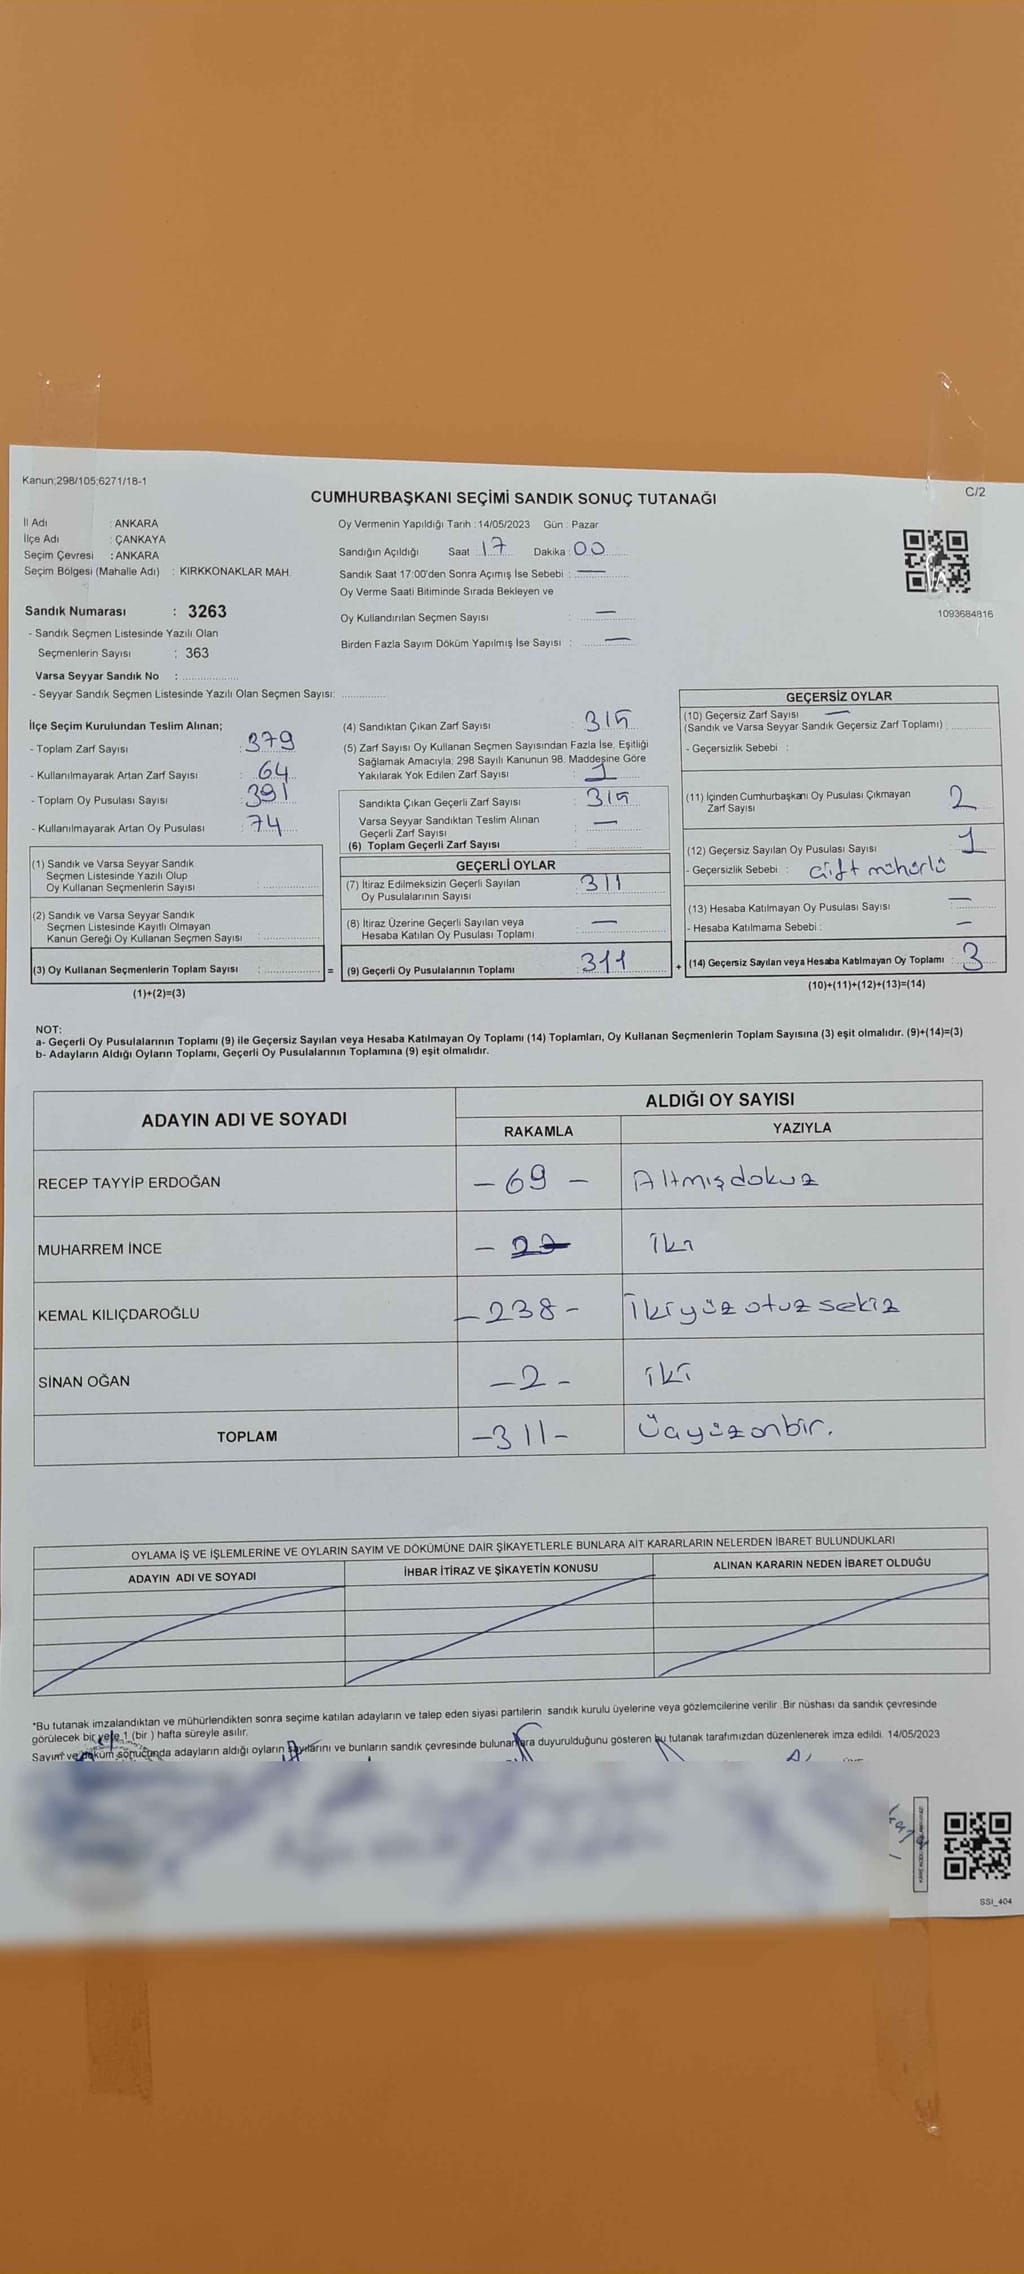 Kanun;298/105;6271/18-1
C/2
CUMHURBAŞKANI SEÇİMİ SANDIK SONUÇ TUTANAĞI
İl Adı : ANKARA
İlçe Adı : ÇANKAYA
Seçim Çevresi : ANKARA
Seçim Bölgesi (Mahalle Adı) : KIRKKONAKLAR MAH.
Sandık Numarası : 3263
- Sandık Seçmen Listesinde Yazılı Olan
Seçmenlerin Sayısı : 363
Varsa Seyyar Sandık No :
- Seyyar Sandık Seçmen Listesinde Yazılı Olan Seçmen Sayısı:
Oy Vermenin Yapıldığı Tarih : 14/05/2023 Gün : Pazar
Sandığın Açıldığı Saat : 17 Dakika : 00
Sandık Saat 17:00'den Sonra Açımış İse Sebebi : —
Oy Verme Saati Bitiminde Sırada Bekleyen ve
Oy Kullandırılan Seçmen Sayısı : —
Birden Fazla Sayım Döküm Yapılmış İse Sayısı : —
1093684816
İlçe Seçim Kurulundan Teslim Alınan;
- Toplam Zarf Sayısı : 379
- Kullanılmayarak Artan Zarf Sayısı : 64
- Toplam Oy Pusulası Sayısı : 391
- Kullanılmayarak Artan Oy Pusulası : 74
(1) Sandık ve Varsa Seyyar Sandık
Seçmen Listesinde Yazılı Olup
Oy Kullanan Seçmenlerin Sayısı :
(2) Sandık ve Varsa Seyyar Sandık
Seçmen Listesinde Kayıtlı Olmayan
Kanun Gereği Oy Kullanan Seçmen Sayısı :
(3) Oy Kullanan Seçmenlerin Toplam Sayısı :
(1)+(2)=(3)
=
(4) Sandıktan Çıkan Zarf Sayısı : 315
(5) Zarf Sayısı Oy Kullanan Seçmen Sayısından Fazla İse, Eşitliği
Sağlamak Amacıyla, 298 Sayılı Kanunun 98. Maddesine Göre
Yakılarak Yok Edilen Zarf Sayısı : 1
Sandıkta Çıkan Geçerli Zarf Sayısı : 315
Varsa Seyyar Sandıktan Teslim Alınan
Geçerli Zarf Sayısı : —
(6) Toplam Geçerli Zarf Sayısı :
GEÇERLİ OYLAR
(7) İtiraz Edilmeksizin Geçerli Sayılan
Oy Pusulalarının Sayısı : 311
(8) İtiraz Üzerine Geçerli Sayılan veya
Hesaba Katılan Oy Pusulası Toplamı : —
(9) Geçerli Oy Pusulalarının Toplamı : 311
+
GEÇERSİZ OYLAR
(10) Geçersiz Zarf Sayısı —
(Sandık ve Varsa Seyyar Sandık Geçersiz Zarf Toplamı) :
- Geçersizlik Sebebi :
(11) İçinden Cumhurbaşkanı Oy Pusulası Çıkmayan
Zarf Sayısı 2
(12) Geçersiz Sayılan Oy Pusulası Sayısı 1
- Geçersizlik Sebebi : çift mühürlü
(13) Hesaba Katılmayan Oy Pusulası Sayısı —
- Hesaba Katılmama Sebebi : —
(14) Geçersiz Sayılan veya Hesaba Katılmayan Oy Toplamı : 3
(10)+(11)+(12)+(13)=(14)
NOT:
a- Geçerli Oy Pusulalarının Toplamı (9) ile Geçersiz Sayılan veya Hesaba Katılmayan Oy Toplamı (14) Toplamları, Oy Kullanan Seçmenlerin Toplam Sayısına (3) eşit olmalıdır. (9)+(14)=(3)
b- Adayların Aldığı Oyların Toplamı, Geçerli Oy Pusulalarının Toplamına (9) eşit olmalıdır.
ADAYIN ADI VE SOYADI
ALDIĞI OY SAYISI
RAKAMLA YAZIYLA
RECEP TAYYİP ERDOĞAN - 69 - Altmışdokuz
MUHARREM İNCE - 2 iki
KEMAL KILIÇDAROĞLU - 238 - ikiyüz otuz sekiz
SİNAN OĞAN - 2 - iki
TOPLAM - 311 - Üçyüzonbir.
OYLAMA İŞ VE İŞLEMLERİNE VE OYLARIN SAYIM VE DÖKÜMÜNE DAİR ŞİKAYETLERLE BUNLARA AİT KARARLARIN NELERDEN İBARET BULUNDUKLARI
ADAYIN ADI VE SOYADI İHBAR İTİRAZ VE ŞİKAYETİN KONUSU ALINAN KARARIN NEDEN İBARET OLDUĞU
*Bu tutanak imzalandıktan ve mühürlendikten sonra seçime katılan adayların ve talep eden siyasi partilerin sandık kurulu üyelerine veya gözlemcilerine verilir. Bir nüshası da sandık çevresinde
görülecek bir yere 1 (bir ) hafta süreyle asılır.
Sayım ve döküm sonucunda adayların aldığı oyların sayılarını ve bunların sandık çevresinde bulunanlara duyurulduğunu gösteren bu tutanak tarafımızdan düzenlenerek imza edildi. 14/05/2023
SSI_404